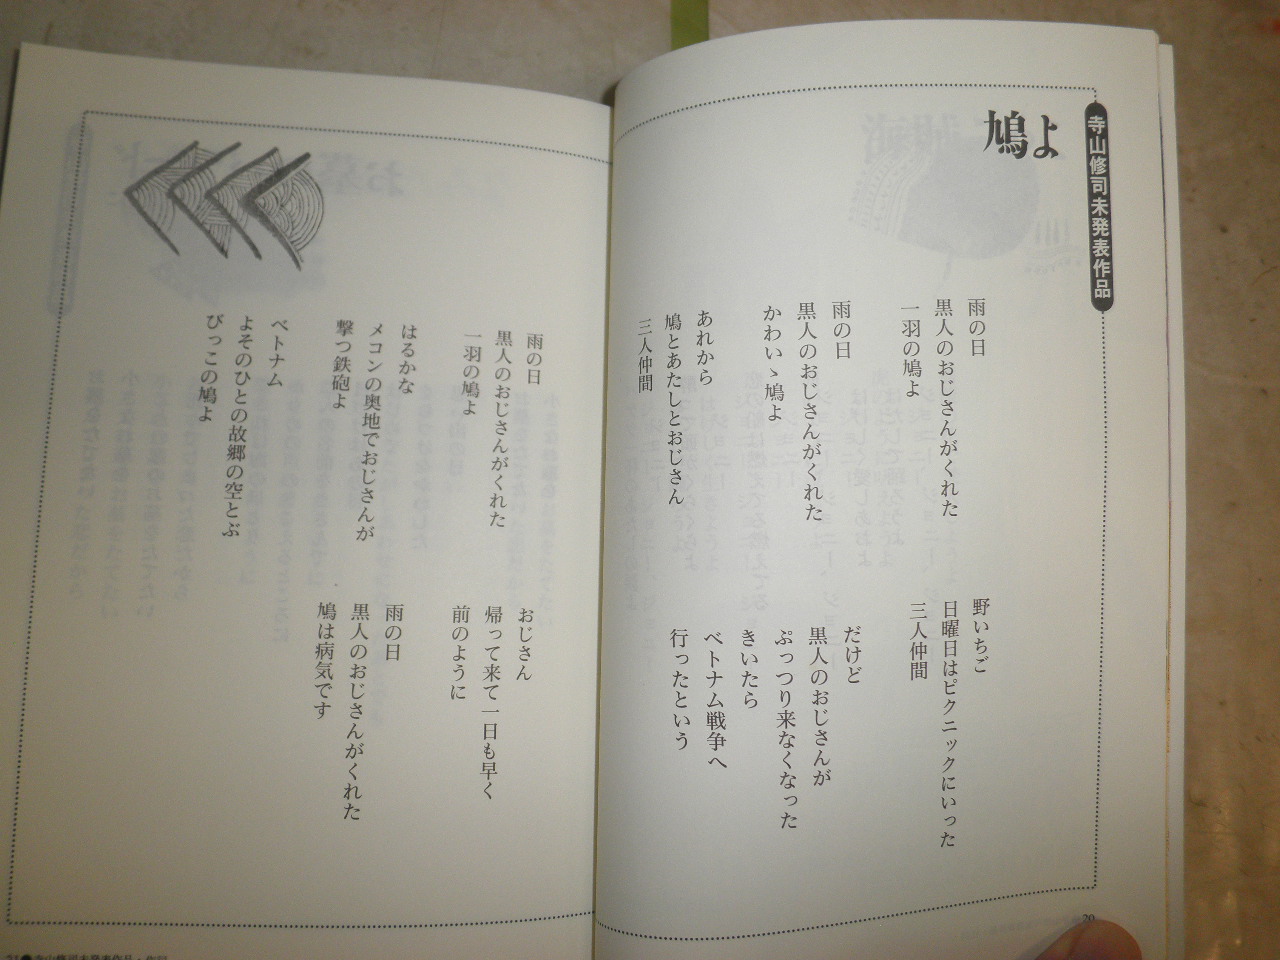 寺山修司未発表作品
鳩よ
雨の日
黒人のおじさんがくれた
一羽の鳩よ
雨の日
黒人のおじさんがくれた
かわいゝ鳩よ
あれから
鳩とあたしとおじさん
三人仲間
野いちご
日曜日はピクニックにいった
三人仲間
だけど
黒人のおじさんが
ぷっつり来なくなった
きいたら
ベトナム戦争へ
行ったという
20
雨の日
黒人のおじさんがくれた
一羽の鳩よ
はるかな
メコンの奥地でおじさんが
撃つ鉄砲よ
ベトナム
よそのひとの故郷の空とぶ
びっこの鳩よ
おじさん
帰って来て一日も早く
前のように
雨の日
黒人のおじさんがくれた
鳩は病気です